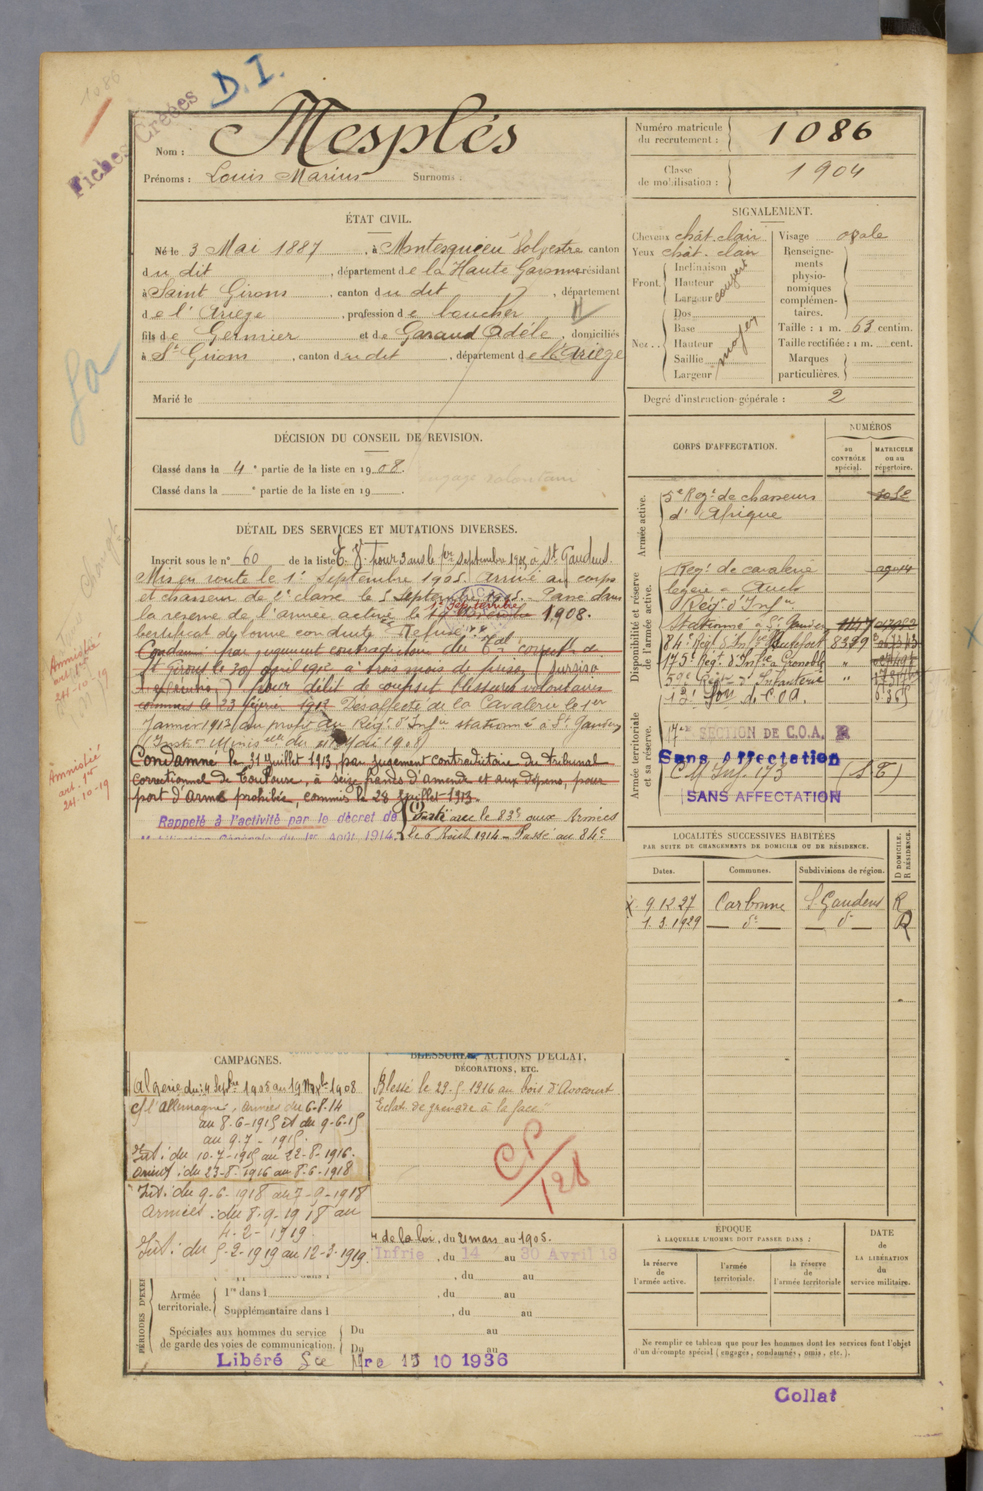 1086
D. I.
Fiches Créées
Nom : Mesplés
Prénoms : Louis Marius Surnoms :
Numéro matricule du recrutement : 1086
Classe de mobilisation : 1904
ÉTAT CIVIL.
Né le 3 Mai 1887, à Montesquieu Volvestre canton
du dit, département de la Haute Garonne résidant
à Saint Girons, canton du dit, département
de l'Ariège, profession de boucher
fils de Germier et de Garaud Adèle, domiciliés
à St Girons, canton du dit, département de l'Ariège
Marié le
SIGNALEMENT.
Cheveux chât. clair
Yeux chât. clair
Front. Inclinaison
Hauteur
Largeur
couvert
Nez. Dos
Base
Hauteur
Saillie
Largeur
moyen
Visage ovale
Renseignements physionomiques complémentaires.
Taille : 1 m. 63 centim.
Taille rectifiée : 1 m. cent.
Marques particulières.
Degré d'instruction générale : 2
DÉCISION DU CONSEIL DE REVISION.
Classé dans la 4e partie de la liste en 1908.
Classé dans la e partie de la liste en 19 .
engagé volontaire
DÉTAIL DES SERVICES ET MUTATIONS DIVERSES.
Inscrit sous le n° 60 de la liste E. V. pour 3 ans le 1er septembre 1905 à St Gaudens.
Mis en route le 1er Septembre 1905. Arrivé au corps
et chasseur de 2e classe le 5 Septembre 1905. Passé dans
la réserve de l'armée active le 1er septembre 1908.
Certificat de bonne conduite "Refusé"
Condamné par jugement contradictoire du Tal correctl de
St Girons le 30 avril 1912 à trois mois de prison (sursis
) pour délit de coups et blessures volontaires
commis le 23 février 1912 Désaffecté de la Cavalerie le 1er
Janvier 1913 au profit du Régt d'Infie stationné à St Gaudens
(Inston Minis elle du 21 Mai 1908)
Condamné le 31 juillet 1913 par jugement contradictoire du Tribunal
correctionnel de Toulouse, à seize francs d'amende et aux dépens, pour
port d'arme prohibée, commis le 28 juillet 1913.
Rappelé à l'activité par le décret de
Mobilisation Générale du 1er Août 1914.
(1) Parti avec le 83e aux Armées
le 6 Août 1914 - Passé au 84e
Amnistié
art. 1er
24-10-19
Amnistié
art. 1er
24-10-19
CORPS D'AFFECTATION.
NUMÉROS
au CONTRÔLE spécial.
MATRICULE ou au répertoire.
Armée active.
5e Régt de chasseurs
d'Afrique
Disponibilité et réserve de l'armée active.
Régt de cavalerie
légère - Auch
Régt d'Infie
stationné à St Gaudens
84e Régt d'Infie 8399
175e Régt d'Infie à Grenoble "
Régt d'Infanterie "
Armée territoriale et sa réserve.
17e SECTION DE C.O.A. R
Sans Affectation
CM Inf. 173 (S E)
SANS AFFECTATION
LOCALITÉS SUCCESSIVES HABITÉES
PAR SUITE DE CHANGEMENTS DE DOMICILE OU DE RÉSIDENCE.
Dates. Communes. Subdivisions de région. D DOMICILE. R RÉSIDENCE.
9.12.27 Carbonne St Gaudens R
1.3.1929 — do — — do — D
CAMPAGNES.
Algérie du 4 Septbre 1905 au 19 1908
c/ l'Allemagne, armées du 6-8-14
au 8-6-1915 et du 9-6-15
au 9-7-1915.
Int : du 10-7-1915 au 22-8-1916.
armées : du 23-8-1916 au 8-6-1918
Int : du 9-6-1918 au 7-9-1918
Armées : du 8-9-1918 au
4-2-1919
Int : du 5-2-1919 au 12-3-1919.
BLESSURES, ACTIONS D'ÉCLAT,
DÉCORATIONS, ETC.
Blessé le 29-5-1916 au bois d'Avocourt
Eclat de grenade à la face
CP/128
de la loi, du 21 mars au 1905.
Infrie, du 14 au 30 Avril 13
, du au
PÉRIODES D'EXER
Armée territoriale. 1re dans l , du au
Supplémentaire dans l , du au
Spéciales aux hommes du service de garde des voies de communication. Du au
Du au
Libéré Sce Mre 15 10 1936
ÉPOQUE
À LAQUELLE L'HOMME DOIT PASSER DANS :
la réserve de l'armée active.
l'armée territoriale.
la réserve de l'armée territoriale
DATE de LA LIBÉRATION du service militaire.
Ne remplir ce tableau que pour les hommes dont les services font l'objet
d'un décompte spécial (engagés, condamnés, omis, etc.).
Collat